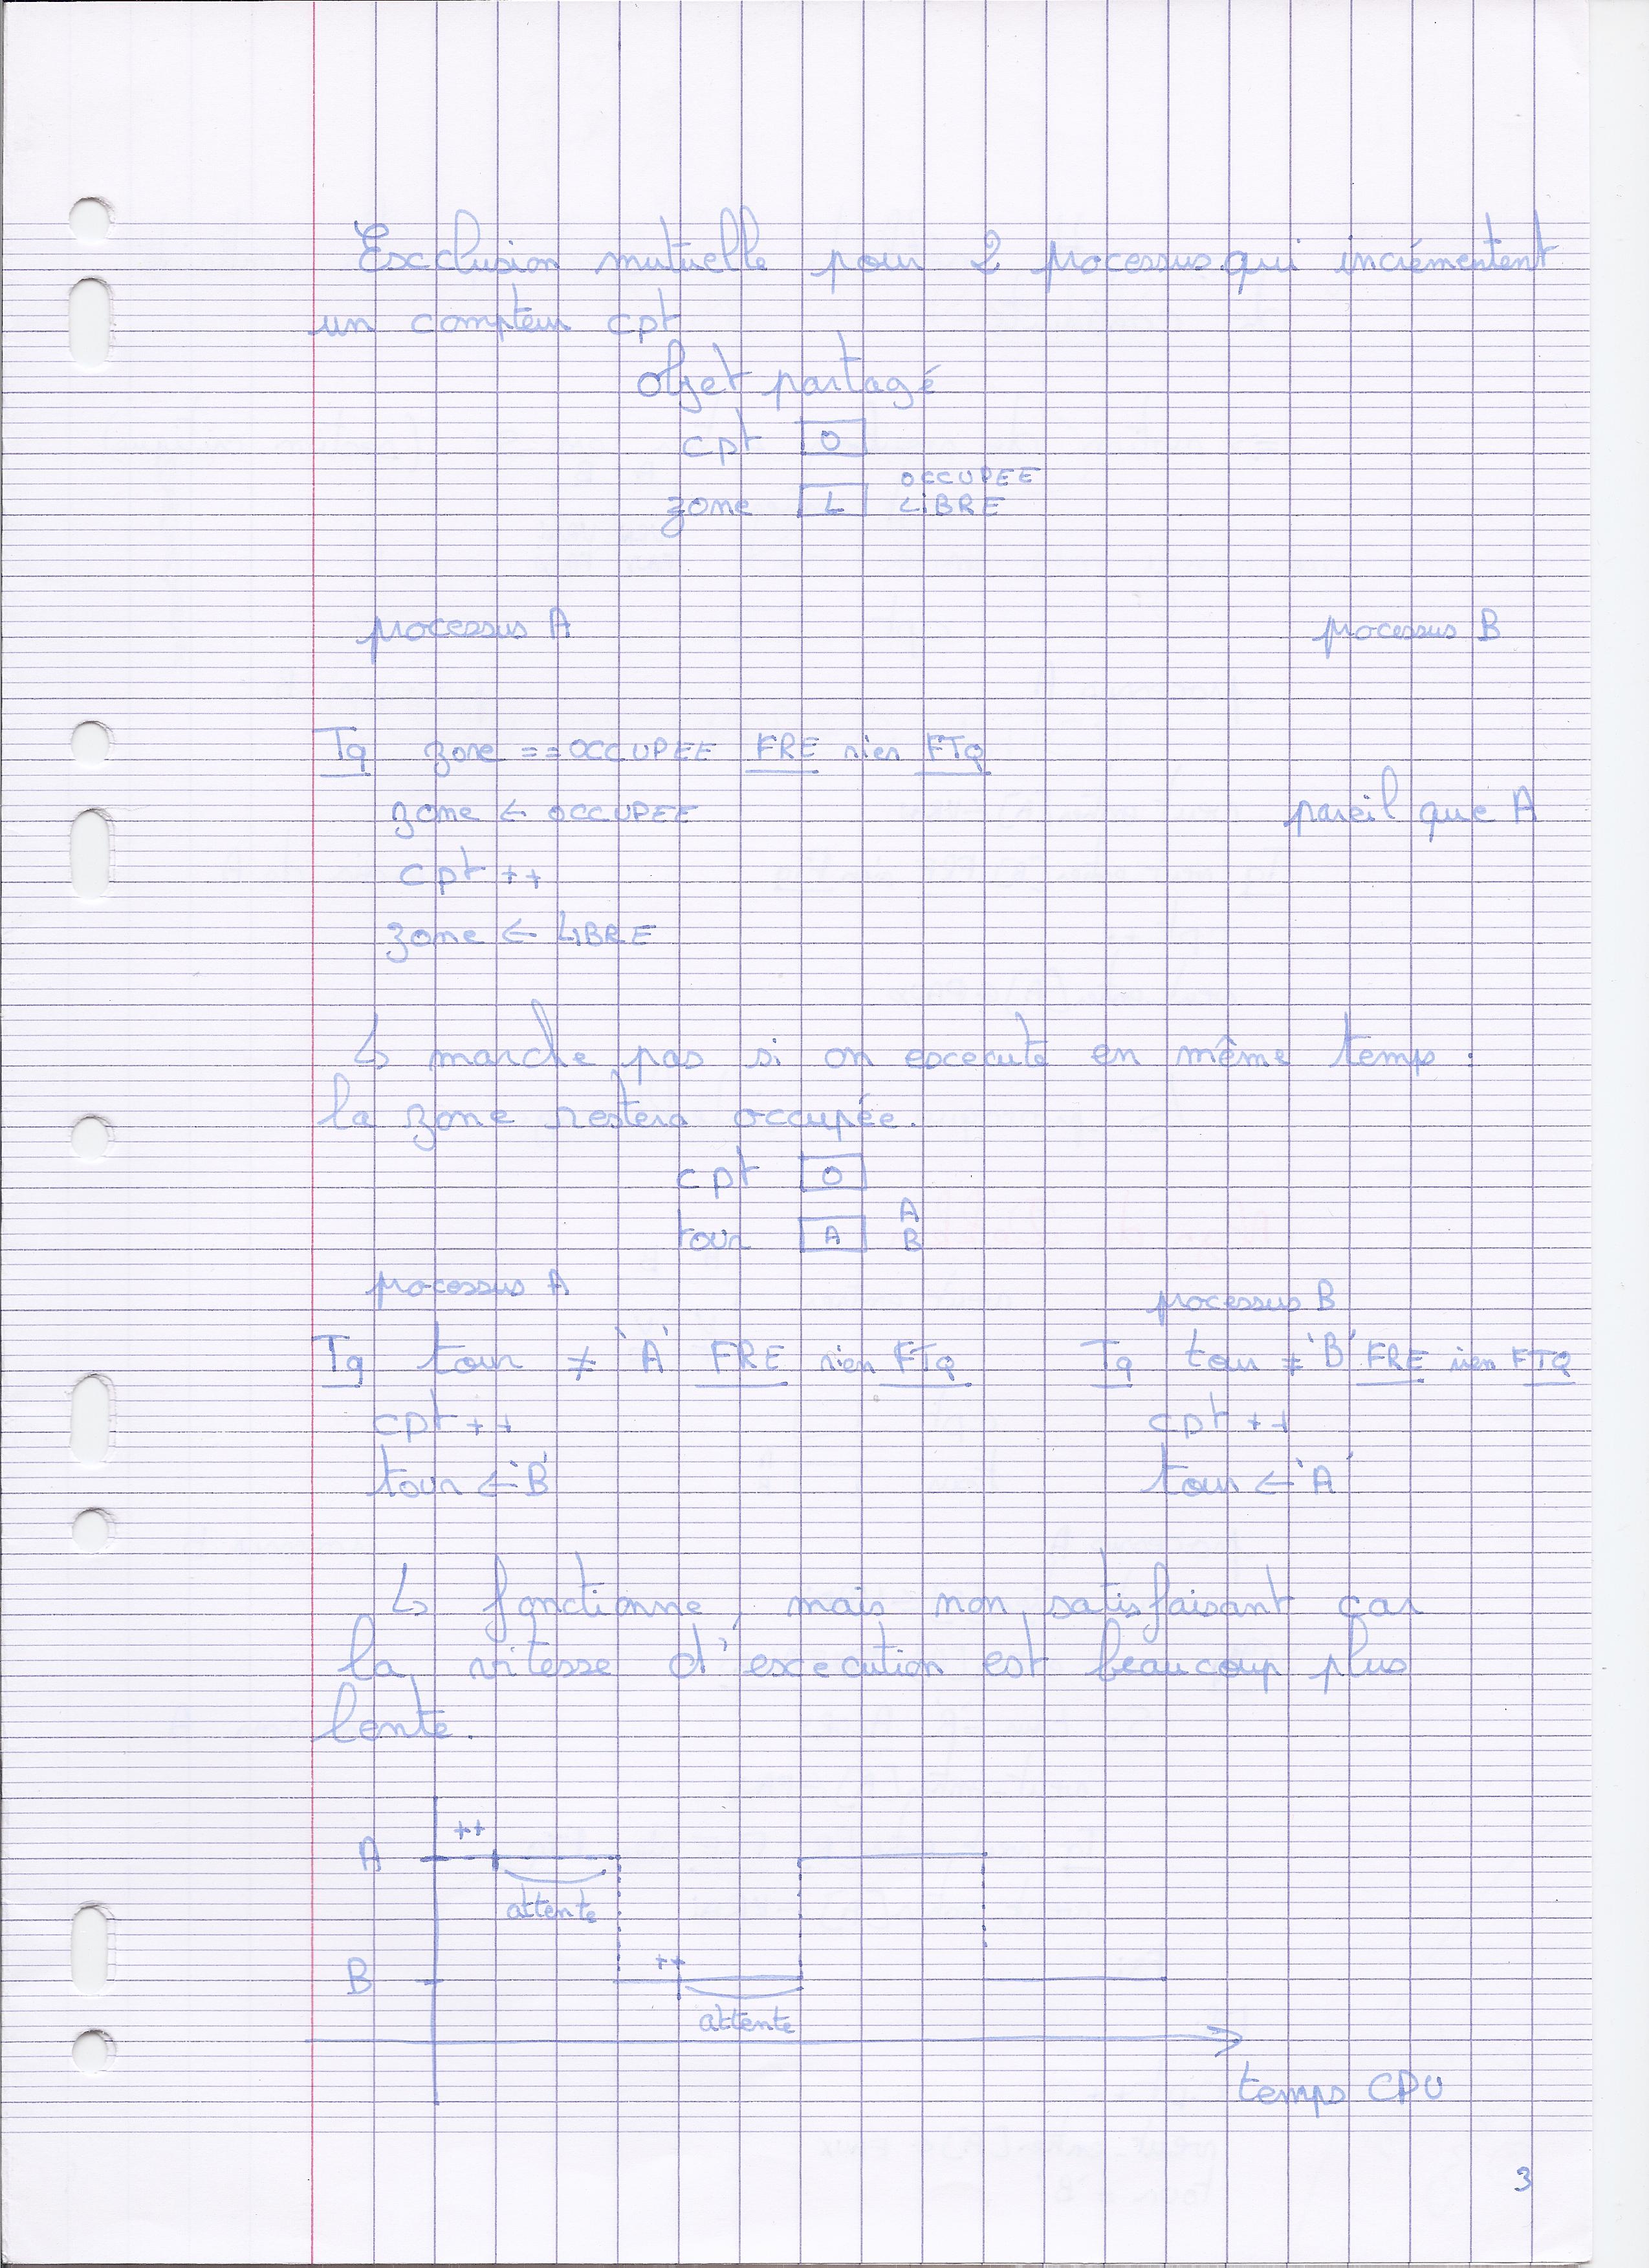 Exclusion mutuelle pour 2 processus qui incrémentent
un compteur cpt
objet partagé
cpt 0
OCCUPEE
zone L LIBRE
processus A processus B
Tq zone == OCCUPEE FRE rien FTQ
zone ← OCCUPEE pareil que A
cpt ++
zone ← LIBRE
↳ marche pas si on execute en même temps :
la zone restera occupée.
cpt 0
A
tour A B
processus A processus B
Tq tour ≠ 'A' FRE rien FTQ Tq tour ≠ 'B' FRE rien FTQ
cpt ++ cpt ++
tour ← 'B' tour ← 'A'
↳ fonctionne, mais non satisfaisant car
la vitesse d'execution est beaucoup plus
lente.
++
A
attente
++
B
attente
temps CPU
3